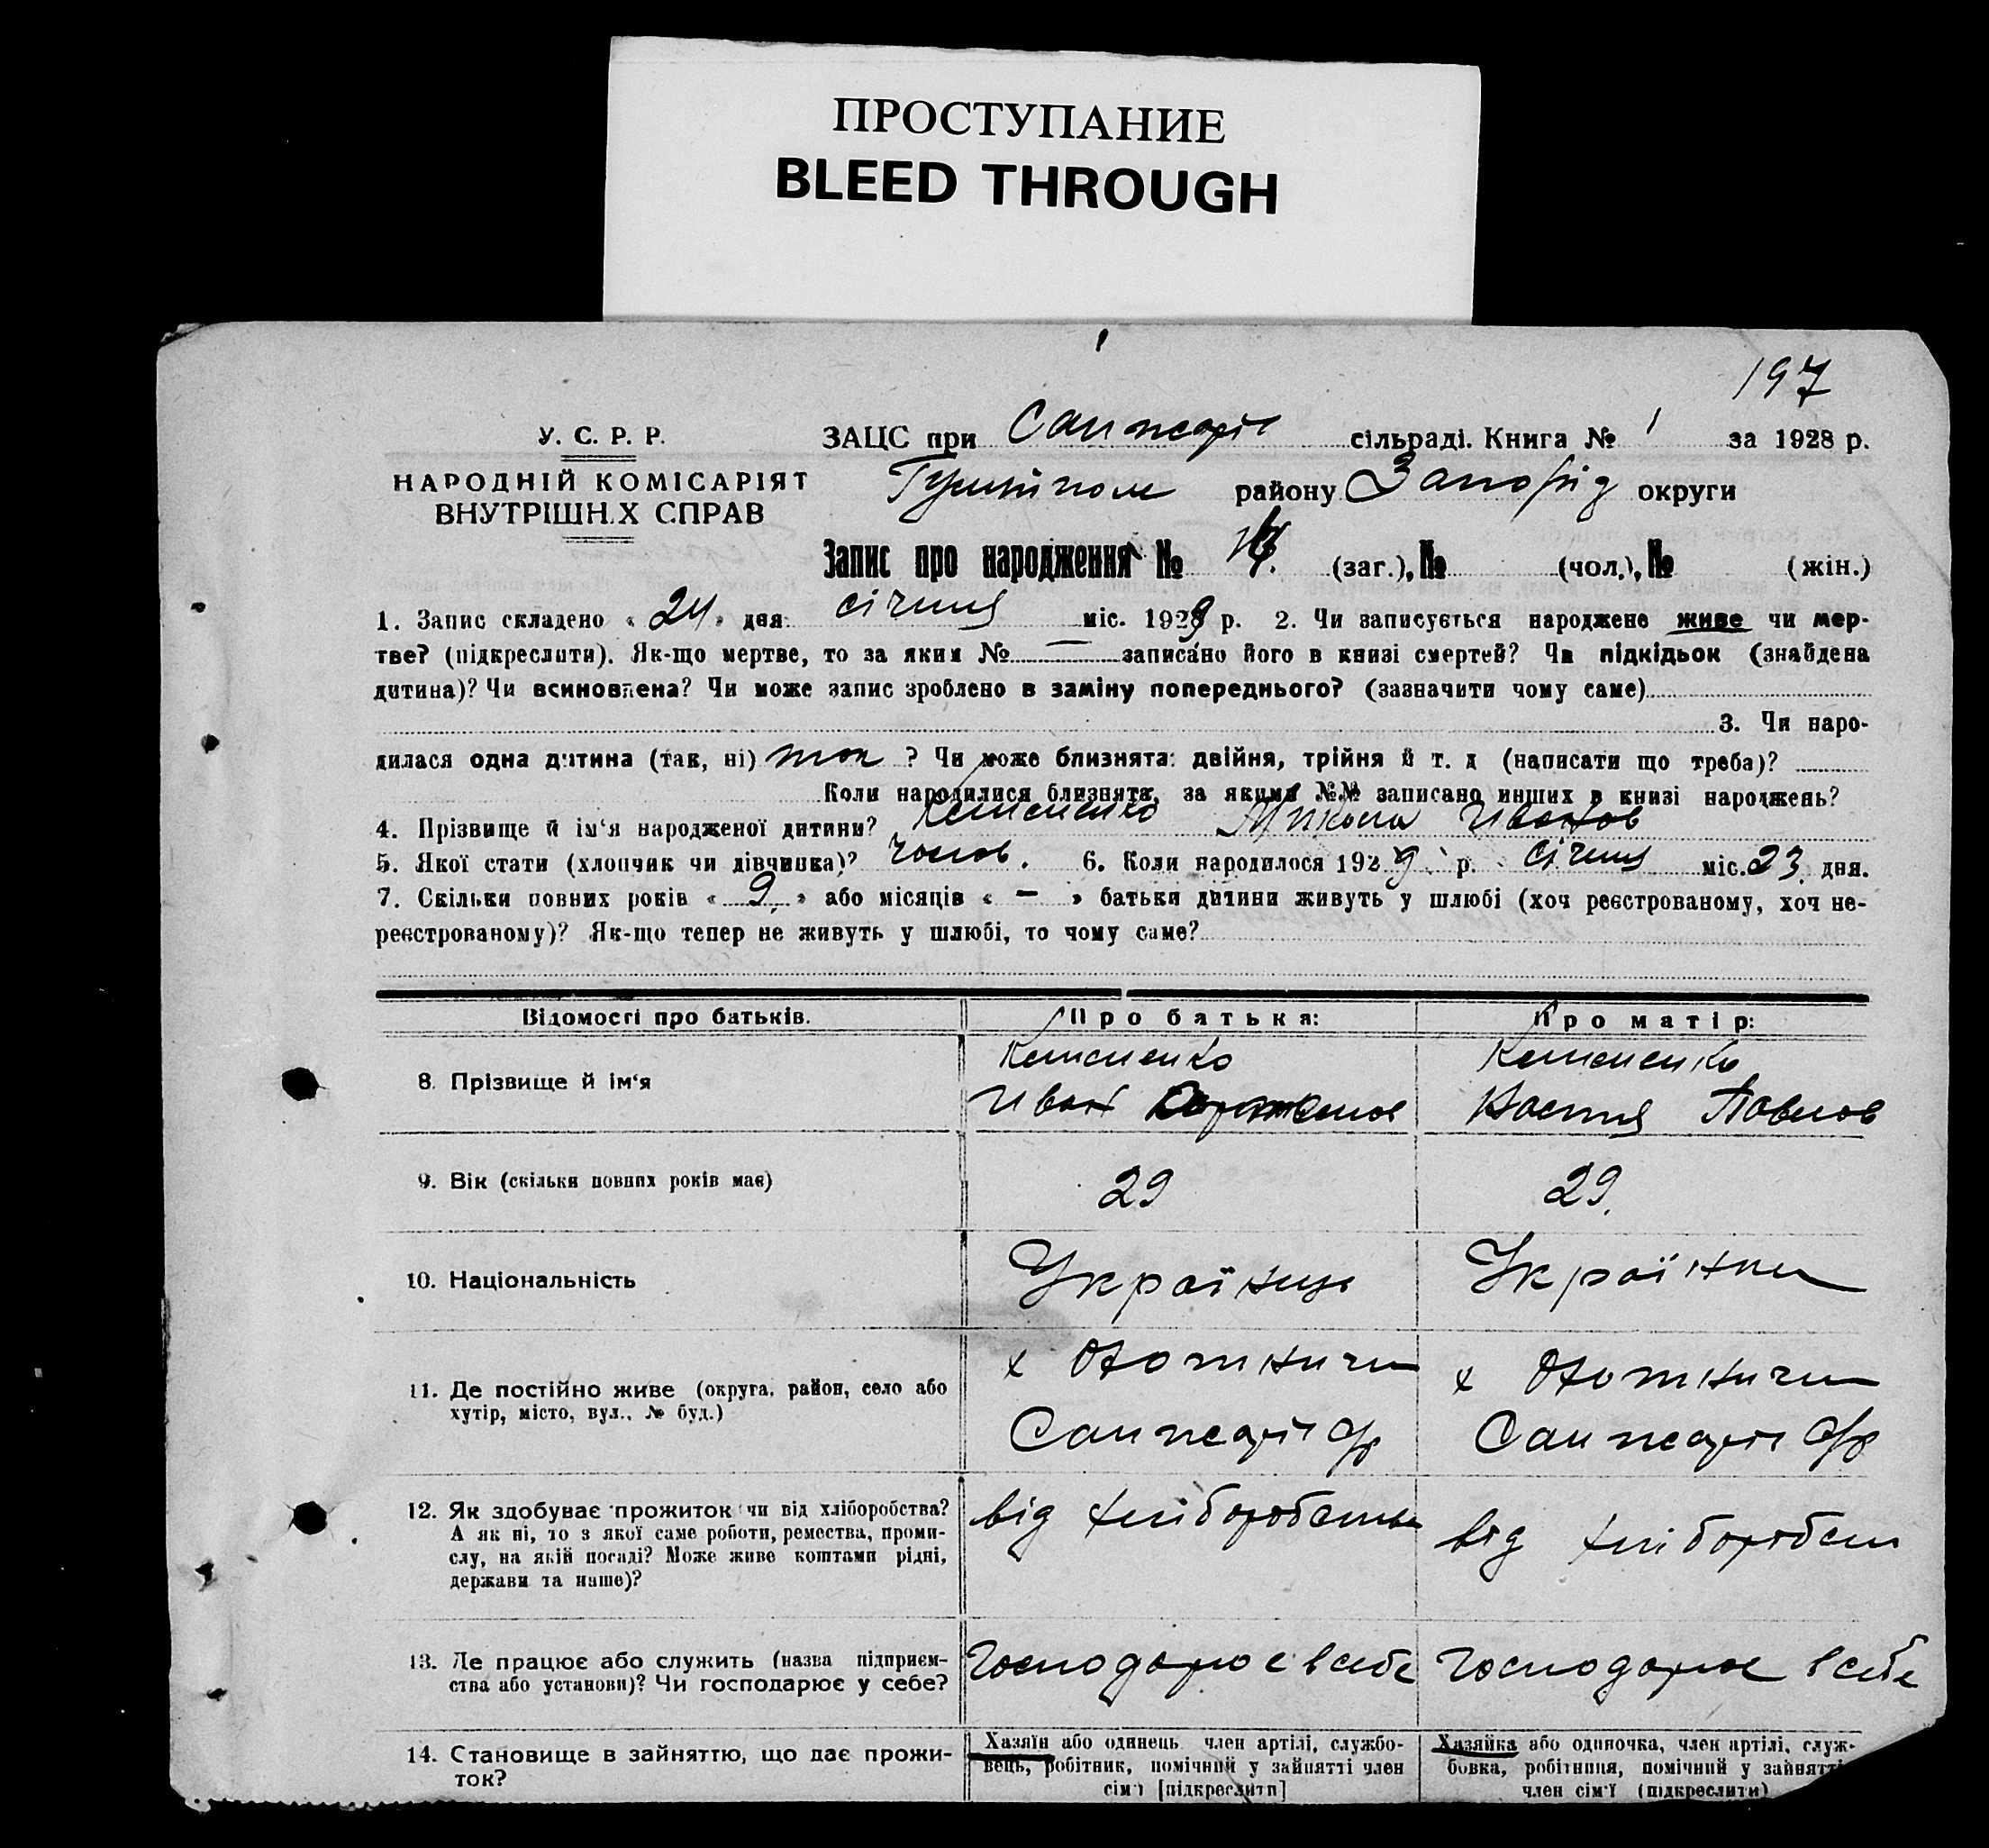 ПРОСТУПАНИЕ
BLEED THROUGH
197
У. С. Р. Р.
НАРОДНІЙ КОМІСАРІЯТ
ВНУТРІШНІХ СПРАВ
ЗАЦС при Санжарів сільраді. Книга № 1 за 1928 р.
району Запоріз округи
Запис про народження № (заг.), № (чол.), № (жін.)
1. Запис складено « 24 » дня січня міс. 1929 р. 2. Чи записується народжене живе чи мер-
тве? (підкреслити). Як-що мертве, то за яким № — записано його в книзі смертей? Чи підкідьок (знайдена
дитина)? Чи всиновлена? Чи може запис зроблено в заміну попереднього? (зазначити чому саме)
3. Чи наро-
дилася одна дитина (так, ні) так ? Чи може близнята: двійня, трійня й т. д (написати що треба)?
Коли народилися близнята, за якими №№ записано инших в книзі народжень?
4. Прізвище й ім'я народженої дитини? Микола Иванов
5. Якої стати (хлопчик чи дівчинка)? чолов. 6. Коли народилося 1929 р. січня міс. 23 дня.
7. Скільки повних років « 9 » або місяців « — » батьки дитини живуть у шлюбі (хоч реєстрованому, хоч не-
реєстрованому)? Як-що тепер не живуть у шлюбі, то чому саме?
Відомості про батьків. Про батька: Про матір:
8. Прізвище й ім'я
Иван Настя Павлов
9. Вік (скільки повних років має) 29 29.
10. Національність Українець Українка
11. Де постійно живе (округа, район, село або
хутір, місто, вул., № буд.)
х Охотничи х Охотничи
Санжарів с/р Санжарів с/р
12. Як здобуває прожиток чи від хліборобства?
А як ні, то з якої саме роботи, ремества, проми-
слу, на якій посаді? Може живе коштами рідні,
держави та инше)?
від хліборобства від хліборобст
13. Де працює або служить (назва підприєм-
ства або установи)? Чи господарює у себе?
Господарює в себе Господарює в себе
14. Становище в зайняттю, що дає прожи-
ток?
Хазяїн або одинець член артілі, службо-
вець, робітник, помічний у зайнятті член
сім'ї [підкреслити]
Хазяйка або одиночка, член артілі, служ-
бовка, робітниця, помічний у зайнятті
член сім'ї (підкреслити)